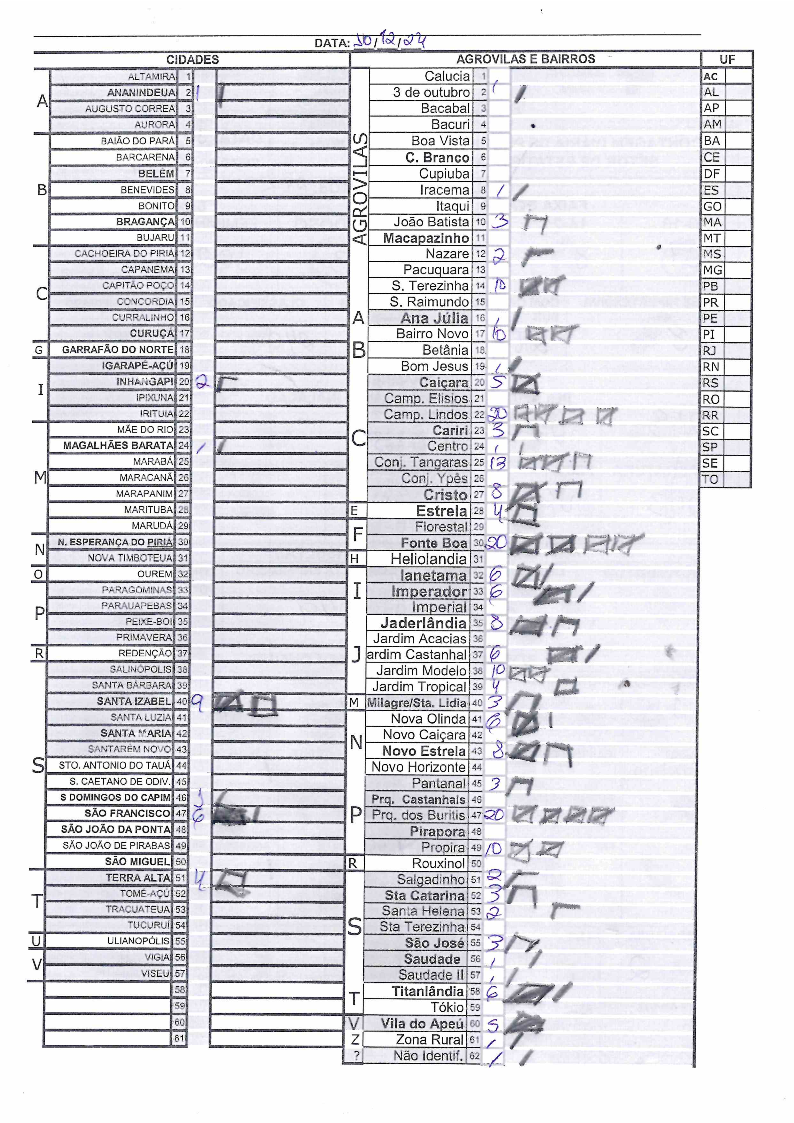 DATA: 30/12/24
CIDADES AGROVILAS E BAIRROS UF
A
ALTAMIRA 1
ANANINDEUA 2 1
AUGUSTO CORREA 3
AURORA 4
B
BAIÃO DO PARÁ 5
BARCARENA 6
BELÉM 7
BENEVIDES 8
BONITO 9
BRAGANÇA 10
BUJARU 11
C
CACHOEIRA DO PIRIA 12
CAPANEMA 13
CAPITÃO POÇO 14
CONCORDIA 15
CURRALINHO 16
CURUÇÁ 17
G GARRAFÃO DO NORTE 18
I
IGARAPÉ-AÇÚ 19
INHANGAPI 20 2
IPIXUNA 21
IRITUIA 22
M
MÃE DO RIO 23
MAGALHÃES BARATA 24 1
MARABÁ 25
MARACANÃ 26
MARAPANIM 27
MARITUBA 28
MARUDÁ 29
N
N. ESPERANÇA DO PIRIA 30
NOVA TIMBOTEUA 31
O OUREM 32
P
PARAGOMINAS 33
PARAUAPEBAS 34
PEIXE-BOI 35
PRIMAVERA 36
R REDENÇÃO 37
S
SALINÓPOLIS 38
SANTA BÁRBARA 39
SANTA IZABEL 40 9
SANTA LUZIA 41
SANTA MARIA 42
SANTARÉM NOVO 43
STO. ANTONIO DO TAUÁ 44
S. CAETANO DE ODIV. 45
S DOMINGOS DO CAPIM 46 1
SÃO FRANCISCO 47 6
SÃO JOÃO DA PONTA 48
SÃO JOÃO DE PIRABAS 49
SÃO MIGUEL 50
T
TERRA ALTA 51 4
TOMÉ-AÇÚ 52
TRACUATEUA 53
TUCURUÍ 54
U ULIANOPÓLIS 55
V
VIGIA 56
VISEU 57
58
59
60
61
AGROVILAS
Calucia 1
3 de outubro 2 1
Bacabal 3
Bacuri 4
Boa Vista 5
C. Branco 6
Cupiuba 7
Iracema 8 1
Itaqui 9
João Batista 10 3
Macapazinho 11
Nazare 12 2
Pacuquara 13
S. Terezinha 14 10
S. Raimundo 15
A Ana Júlia 16 1
B
Bairro Novo 17 10
Betânia 18
Bom Jesus 19 1
C
Caiçara 20 5
Camp. Elisios 21
Camp. Lindos 22 20
Cariri 23 3
Centro 24 1
Conj. Tangaras 25 13
Conj. Ypês 26
Cristo 27 8
E Estrela 28 4
F
Florestal 29
Fonte Boa 30 20
H Heliolandia 31
I
Ianetama 32 6
Imperador 33 6
Imperial 34
J
Jaderlândia 35 8
Jardim Acacias 36
ardim Castanhal 37 6
Jardim Modelo 38 10
Jardim Tropical 39 4
M Milagre/Sta. Lidia 40 3
N
Nova Olinda 41 6
Novo Caiçara 42
Novo Estrela 43 8
Novo Horizonte 44
P
Pantanal 45 3
Prq. Castanhals 46
Prq. dos Buritis 47 20
Pirapora 48
Propira 49 10
R Rouxinol 50
S
Salgadinho 51 2
Sta Catarina 52 3
Santa Helena 53 2
Sta Terezinha 54
São José 55 3
Saudade 56 1
Saudade II 57 1
T
Titanlândia 58 6
Tókio 59
V Vila do Apeú 60 5
Z Zona Rural 61 1
? Não Identif. 62 1
AC
AL
AP
AM
BA
CE
DF
ES
GO
MA
MT
MS
MG
PB
PR
PE
PI
RJ
RN
RS
RO
RR
SC
SP
SE
TO